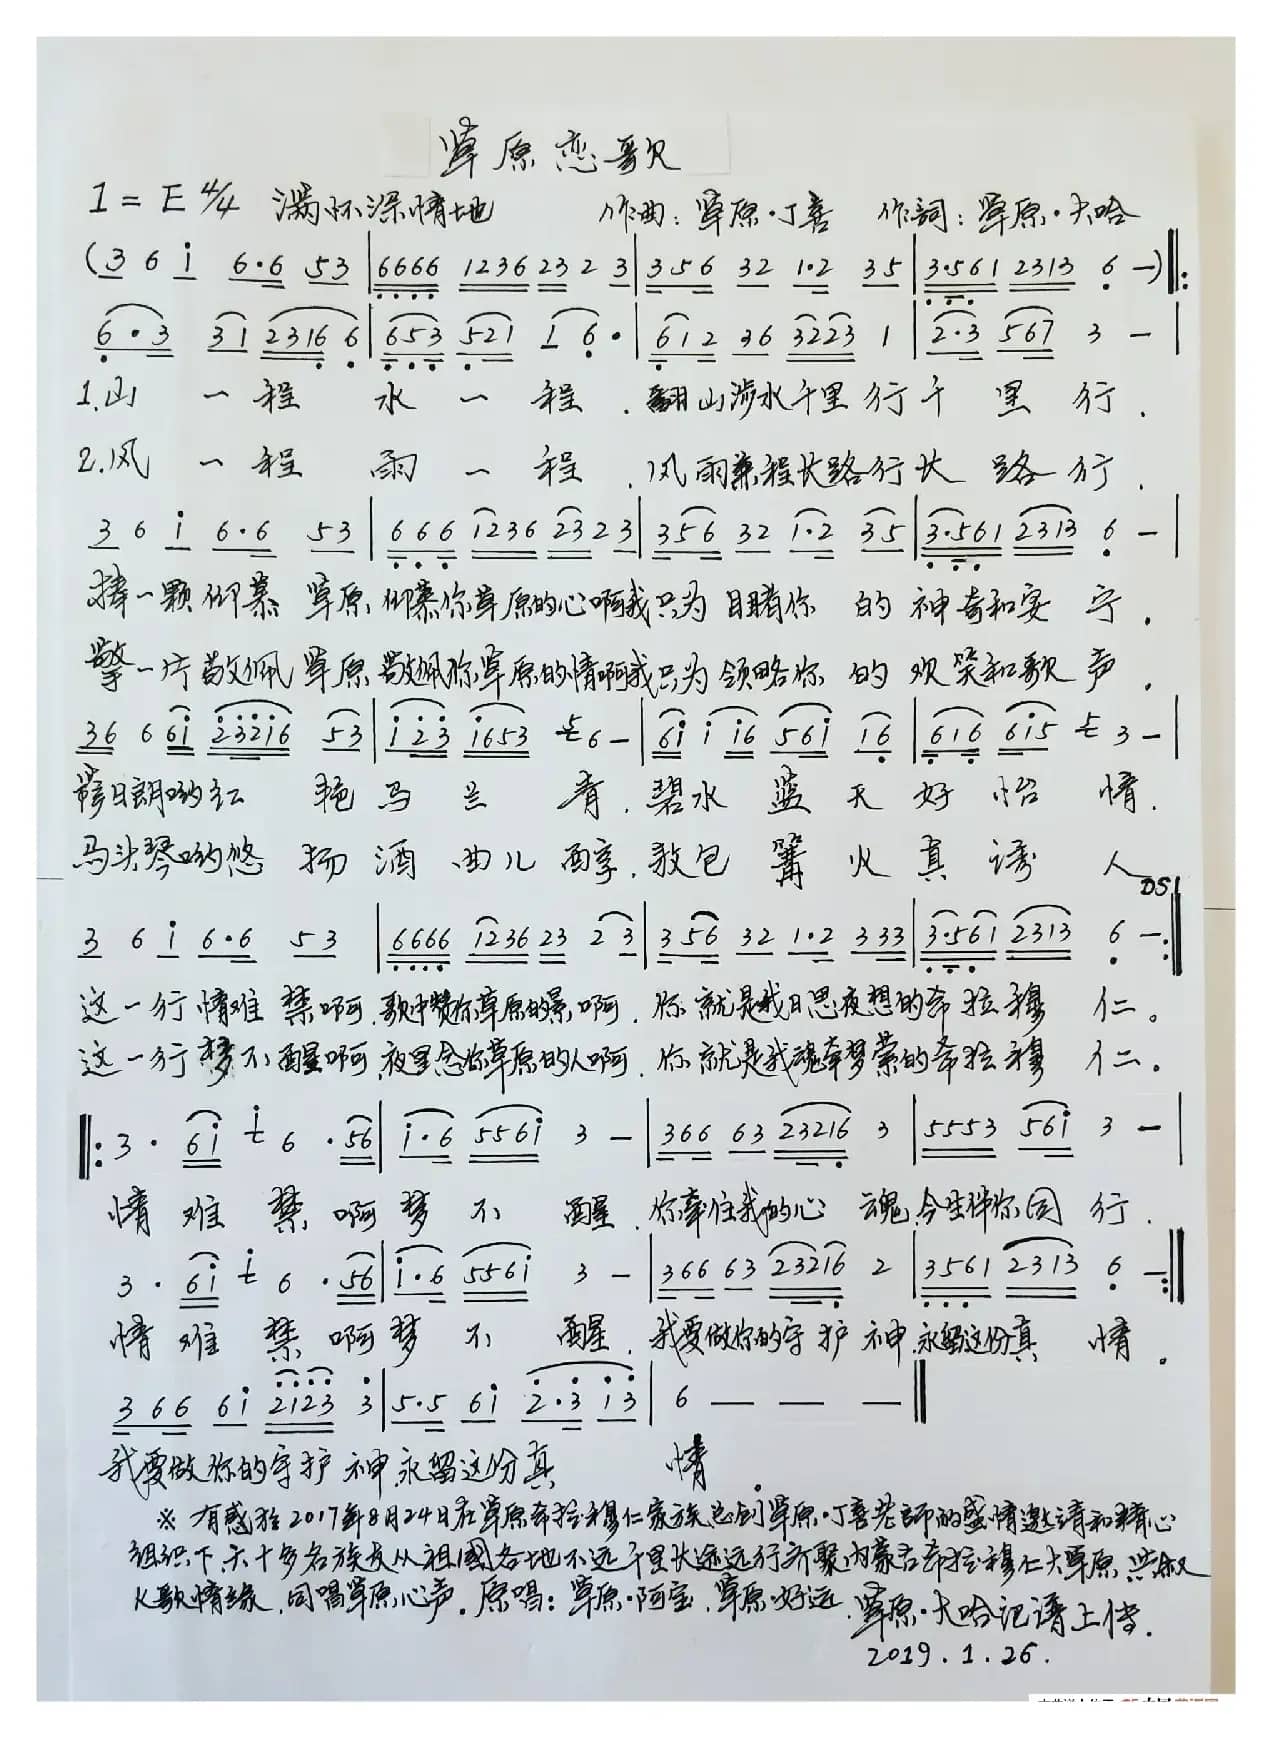 草原恋歌
1=E 4/4 满怀深情地 作曲:草原·丁喜 作詞:草原·大哈
(3 6 i 6·6 53 | 6666 1236 23 2 3 | 3 5 6 32 1·2 35 | 3·561 2313 6 —) ‖:
6·3 31 2316 6 | 653 521 1 6· | 612 36 3223 1 | 2·3 567 3 — |
1.山 一 程 水 一 程.翻山涉水千里行千 里 行.
2.风 一 程 雨 一 程.风雨兼程长路行长 路 行.
3 6 i 6·6 53 | 6 6 6 1236 23 2 3 | 3 5 6 32 1·2 35 | 3·561 2313 6 — |
捧一颗仰慕 草原,仰慕你草原的心啊我只为 目睹你 的 神奇和安 宁.
擎一片敬佩 草原,敬佩你草原的情啊我只为 领略你 的 欢笑和歌 声.
36 6 6i 23216 53 | i 2 3 i653 5 6 — | 6i i i6 56i i6 | 616 6i5 5 3 — |
萨日朗哟红 艳 马 兰 青.碧水 蓝 天 好 怡 情.
马头琴哟悠 扬 酒 曲儿 醇.敖包 篝 火 真 诱 人
DS1
3 6 i 6·6 5 3 | 6666 1236 23 2 3 | 3 56 32 1·2 3 33 | 3·561 2313 6 — :‖
这一行情难 禁啊,歌中赞你草原的景啊,你 就是我日思夜想的希拉穆 仁。
这一行梦不 醒啊,夜里念你草原的人啊,你 就是我魂牵梦萦的希拉穆 仁。
‖: 3· 6i i 6·56 | i·6 556i 3 — | 366 63 23216 3 | 5553 56i 3 — |
情 难 禁 啊 梦 不 醒.你牵住我的心 魂,今生伴你同 行.
3· 6i i 6·56 | i·6 556i 3 — | 366 63 23216 2 | 3561 2313 6 — :‖
情 难 禁 啊 梦 不 醒.我要做你的守 护 神,永留这份真 情。
3 66 6i 2123 3 | 5·5 6i 2·3 i3 | 6 — — — ‖
我要做你的守护 神,永留这份真 情.
※ 有感于2017年8月24日在草原希拉穆仁家族总创草原·丁喜老師的盛情邀请和精心
组织下,六十多名族友从祖國各地不远千里长途远行齐聚内蒙古希拉穆仁大草原,共叙
火歌情缘,同唱草原心声。原唱:草原·阿宝.草原·好远.草原·大哈记谱上传.
2019.1.26.